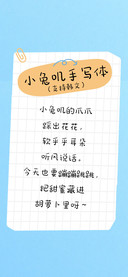 小兔叽手写体
(支持韩文)
小兔叽的爪爪
踩出花花,
软乎乎耳朵
听风说话,
今天也要蹦蹦跳跳,
把甜蜜藏进
胡萝卜里呀~